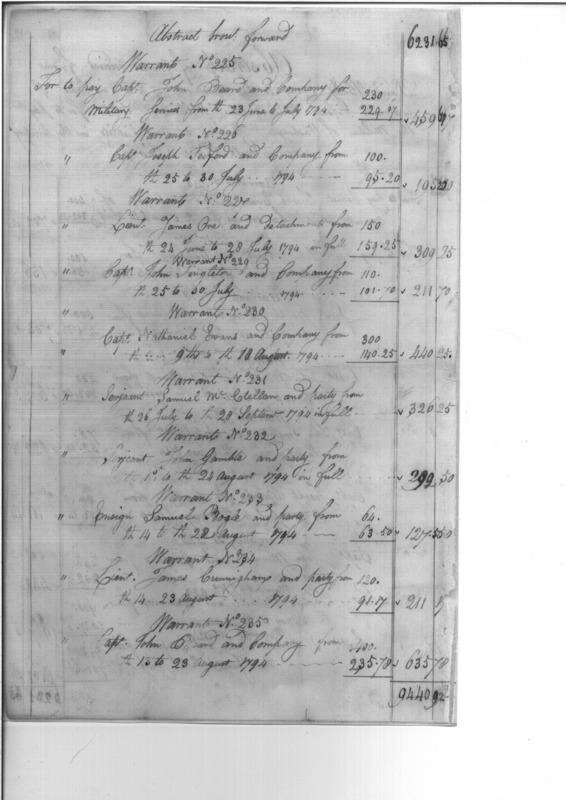 Abstract brot. forward 6231.65
Warrant No. 225
For to pay Capt. John Beard and Company for 230
Military Service from th 23 June to July 1794 229.
Warrant No. 226
" Capt. Joseph and Company from 100.
th 25 to 30 July 1794 95.20
Warrant No.
" Lieut. James Ore and detachments from 150
th 24 June to 28 July 1794 in full 159.25 309 25
Warrant No. 229
" Capt. John Singleton and Company from 110.
th 25 to 30 July 1794 101.70 211 70
" Warrant No. 230
Capt. Nathaniel Evans and Company from 300
" th 9th to th August 1794 140.25 440 25.
Warrant No. 231
" Serjeant Samuel Mc. Clellan and party from
th 26 July to th 28 Septem 1794 in full 320 25
Warrant No. 232
" Serjeant John Gamble and party from
to th 24 August 1794 in full 50
Warrant No. 233
" Ensign Samuel Bogle and party from 64.
th 14 to th 22 August 1794 63.50 127.50
Warrant No. 234
" Lieut. James Cunningham and party from 120.
th 14. 23 August 1794 91.7 211
Warrant No. 235
" Capt. John and Company from 400.
th 13 to 23 August 1794 235.78 635 78
9440 92